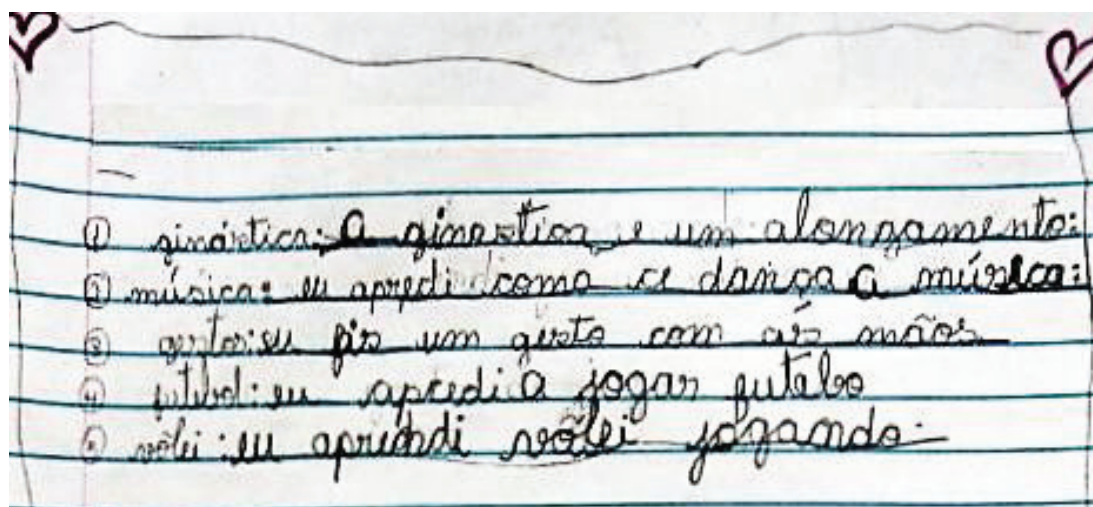 ① ginástica: A ginastica e um alongamento:
② música: eu apredi como ce dança a música:
③ gestos: eu fis um gesto com as mãos
④ futebol: eu apredi a jogar futebo
⑤ vôlei: eu aprendi vôlei jogando.